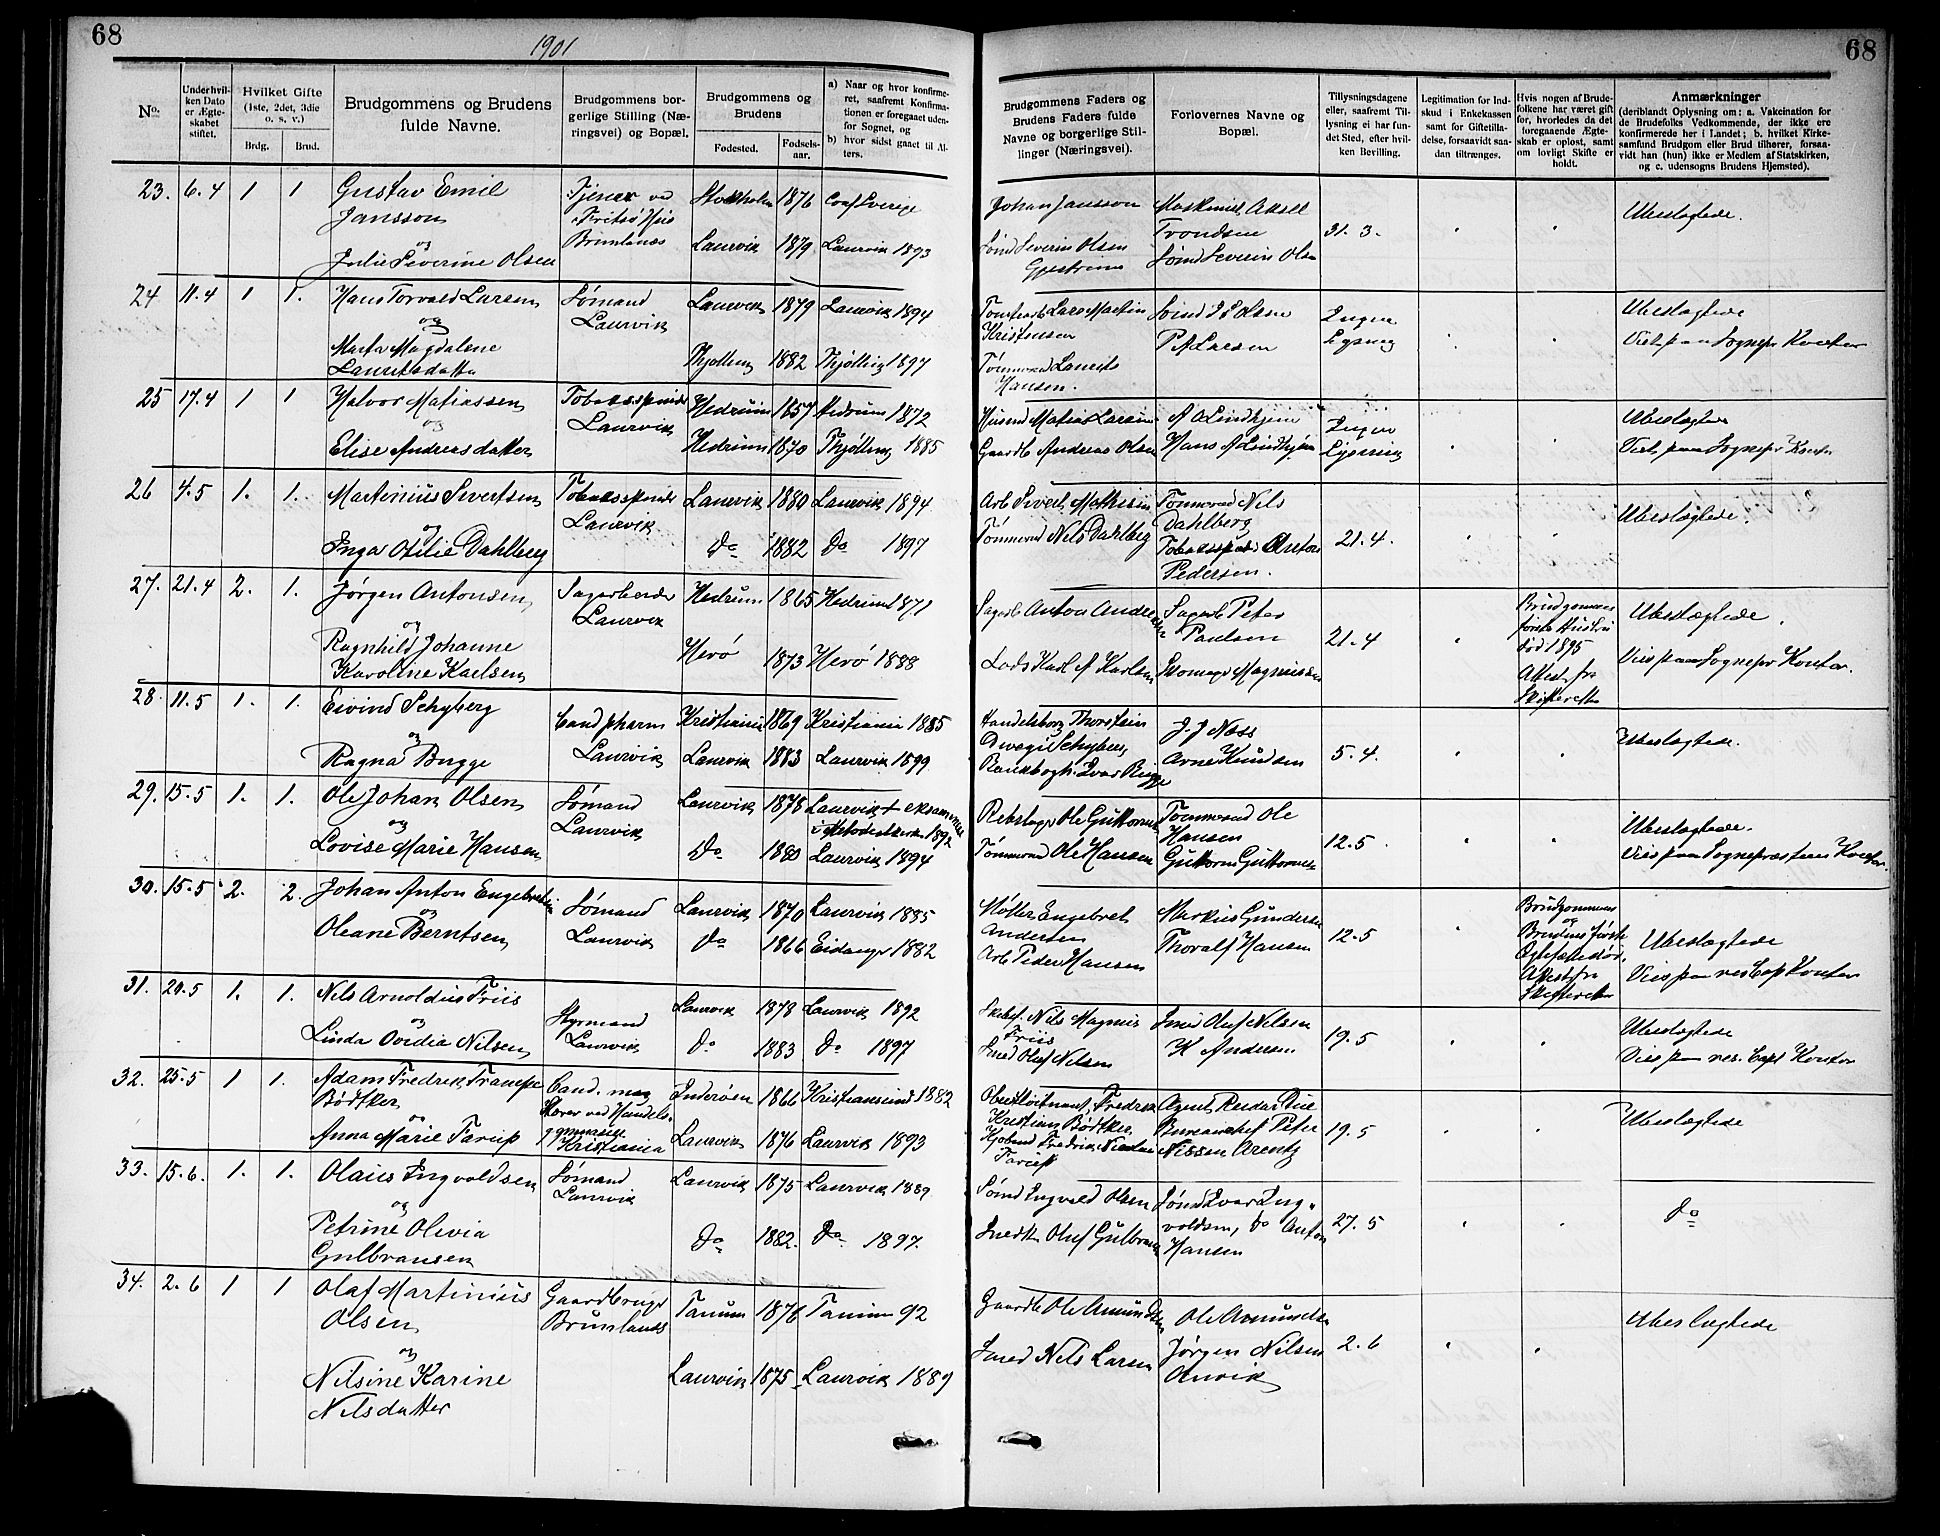 68
1901
68
No.
Underhvil-
ken Dato
er Ægte-
skabet
stiftet.
Hvilket Gifte
(1ste, 2det, 3die
o. s. v.)
Brdg.
Brud.
Brudgommens og Brudens
fulde Navne.
Brudgommens bor-
gerlige Stilling (Næ-
ringsvei) og Bopæl.
Brudgommens og
Brudens
Fødested.
Fødsels-
aar.
a) Naar og hvor konfirme-
ret, saafremt Konfirma-
tionen er foregaaet uden-
for Sognet, og
b) hvor sidst gaaet til Al-
ters.
Brudgommens Faders og
Brudens Faders fulde
Navne og borgerlige Stil-
linger (Næringsvei).
Forlovernes Navne og
Bopæl.
Tillysningsdagene
eller, saafremt Til-
lysning ei har fun-
det Sted, efter hvil-
ken Bevilling.
Legitimation for Ind-
skud i Enkekassen
samt for Giftetilla-
delse, forsaavidt saa-
dan tiltrænges.
Hvis nogen af Brude-
folkene har været gift
før, hvorledes da det
foregaaende Ægte-
skab er opløst, samt
om lovligt Skifte er
holdt.
Anmærkninger
(deriblandt Oplysning om: a. Vakcination for
de Brudefolks Vedkommende, der ikke ere
konfirmerede her i Landet; b. hvilket Kirke-
samfund Brudgom eller Brud tilhører, forsaa-
vidt han (hun) ikke er Medlem af Statskirken,
og c. udensogns Brudens Hjemsted).
23. 6.4 1 1 Gustav Emil
Jansson
og
Julie Severine Olsen
Tjener ved
Fritsø Hus
Brunlanes
Stokholm 1876
Laurvik 1879 Laurvik 1893
Johan Jansson
Sømd Severin Olsen
Trondsen
Sømd Severin Olsen
31.3.
Ubeslægtede.
24 11.4 1 1. Hans Torvald Larsen
og
Marta Magdalene
Lauritsdatter
Sømand
Laurvik
Laurvik 1879 Laurvik 1894
Thjølling 1882 Thjølling 1897
Lars Martin
Kristensen
Tømmermd Laurits
Hansen.
Olsen
Larsen
Ingen
Lysning
Ubeslægtede
Viet paa Sognepr Kontor
25 17.4 1 1 Halvor Matiassen
og
Elise Andreasdatter
Tobaksspinder
Laurvik
Hedrum 1857 Hedrum 1872
Hedrum 1870 Thjølling 1885
Husmd Matias Larsen
Gaardb Andreas Olsen
A A Lindhjem
Hans A Lindhjem
Ingen
Lysning
Ubeslægtede
Viet paa Sognepr Kontor
26 4.5 1. 1. Martinius Sivertsen
og
Inga Otilie Dahlberg
Tobaksspinder
Laurvik
Laurvik 1880 Laurvik 1894
Do 1882 Do 1897
Arb Sivert Mathisen
Tømmermd Nils Dahlberg
Tømmermd Nils
Dahlberg
Tobaksspd Anton
Pedersen.
21.4.
Ubeslægtede.
27. 21.4 2. 1. Jørgen Antonsen
og
Ragnhild Johanne
Karoline Karlsen
Sagarbeider
Laurvik
Hedrum 1865 Hedrum 1871
Herø 1873 Herø 1888
Sagarb Anton Andersen
Lods Karl A Karlsen
Sagarb Peter
Paulsen
Skomager Magnussen
21.4
Brudgomens
første Hustru
død 1895
Attest fra
Skifteretten
Ubeslægtede.
Viet paa Sognepr Kontor.
28. 11.5 1. 1. Eivind Schyberg
og
Ragna Bugge
Cand pharm
Laurvik
Kristiania 1869 Kristiania 1885
Laurvik 1883 Laurvik 1899
Handelsborg Thorstein
Schyberg
Bankbogh. Ivar Bugge
J. J Næss
Arne Knudsen
5.4.
Ubeslægtede.
29. 15.5 1. 1. Ole Johan Olsen
og
Lovise Marie Hansen
Sømand
Laurvik
Laurvik 1878 Laurvik
1892
Do 1880 Laurvik 1894
Rebslager Ole Guttormsen
Tømmermd Ole Hansen
Tømmermd Ole
Hansen
Guttorm Guttormsen
12.5.
Ubeslægtede.
Viet paa Sogneprestens Kontor.
30. 15.5 2. 2. Johan Anton Engebretsen
og
Oleane Berntsen
Sømand
Laurvik
Laurvik 1870 Laurvik 1885
Do 1866 Eidanger 1882
Møller Engebret
Andersen
Arb Peder Hansen
Markus Gundersen
Thoralf Hansen
12.5
Brudgommens
og
Brudens første
Ægtefælle død.
Attest fra
Skifteretten
Ubeslægtede
Viet paa res Cap Kontor
31. 20.5 1. 1. Nils Arnoldus Friis
og
Linda Ovidia Nilsen
Styrmand
Laurvik
Laurvik 1878 Laurvik 1892
Do 1883 Do 1897
Skibsf. Nils Magnus
Friis
Smed Oluf Nilsen
Smed Oluf Nilsen
K Andersen
19.5
Ubeslægtede
Viet paa res. Cap Kontor
32. 25.5 1 1. Adam Fredrik Trampe
Bødtker
og
Anna Marie Farup
Cand. mag
Lærer ved Handels-
gymnasiet
Kristiania
Inderøen 1866 Kristiansund 1882
Laurvik 1876 Laurvik 1893
Oberstløitnant Fredrik
Kristian Bødtker
Kjøbmd Fredrik
Farup
Agent Reidar Due
Bureauchef Peter
Nissen Arentz
19.5
Ubeslægtede
33. 15.6. 1. 1. Olaus Ingvoldsen
og
Petrine Olivia
Gulbransen
Sømand
Laurvik
Laurvik 1875 Laurvik 1889
Do 1882. Do 1897.
Sømd Ingvald Olsen
Oluf Gulbransen
Sømd Ivar Ing-
voldsen, Do Anton
Hansen
27.5
Do
34. 2.6 1 1 Olaf Martinius
Olsen
og
Nilsine Karine
Nilsdatter
Gaardbruger
Brunlanes
Tanum 1876 Tanum 92
Laurvik 1875 Laurvik 1889
Gaardb Ole Amundsen
Smed Nils Larsen
Ole Amundsen
Jørgen Nilsen
2.6
Ubeslægtede